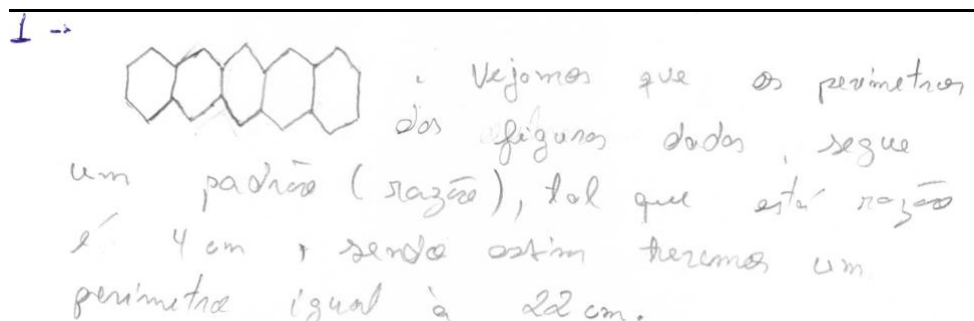 1 →
. Vejamos que os perímetros
das figuras dadas, segue
um padrão (razão), tal que está razão
é 4 cm, sendo assim teremos um
perímetro igual à 22 cm.